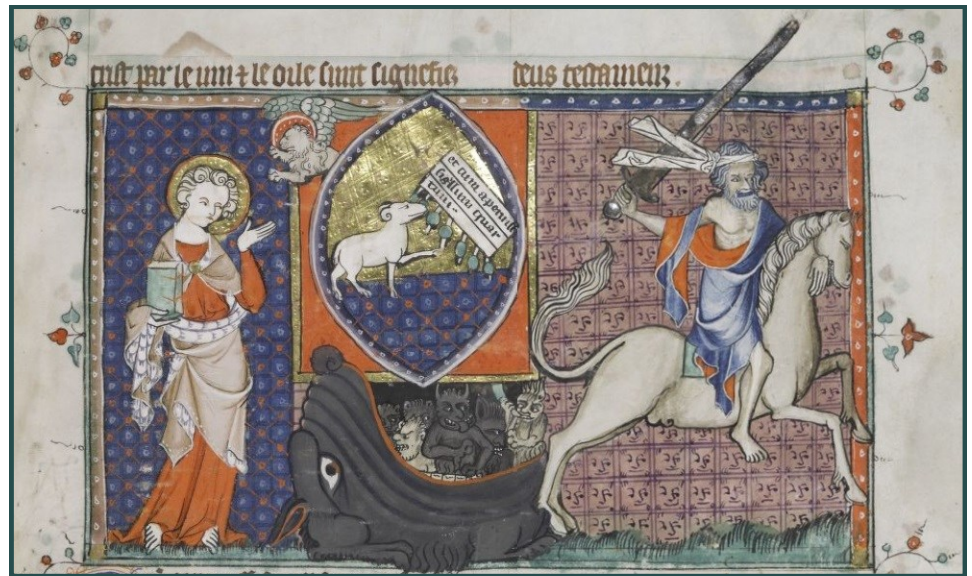 crist par le vin ⁊ le oile sunt signefiez deus testamenz.
et cum aperuiss
sigillum quar
tum.